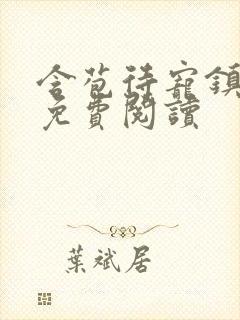 含苞待寵鎮
免費閱讀
葉斌居